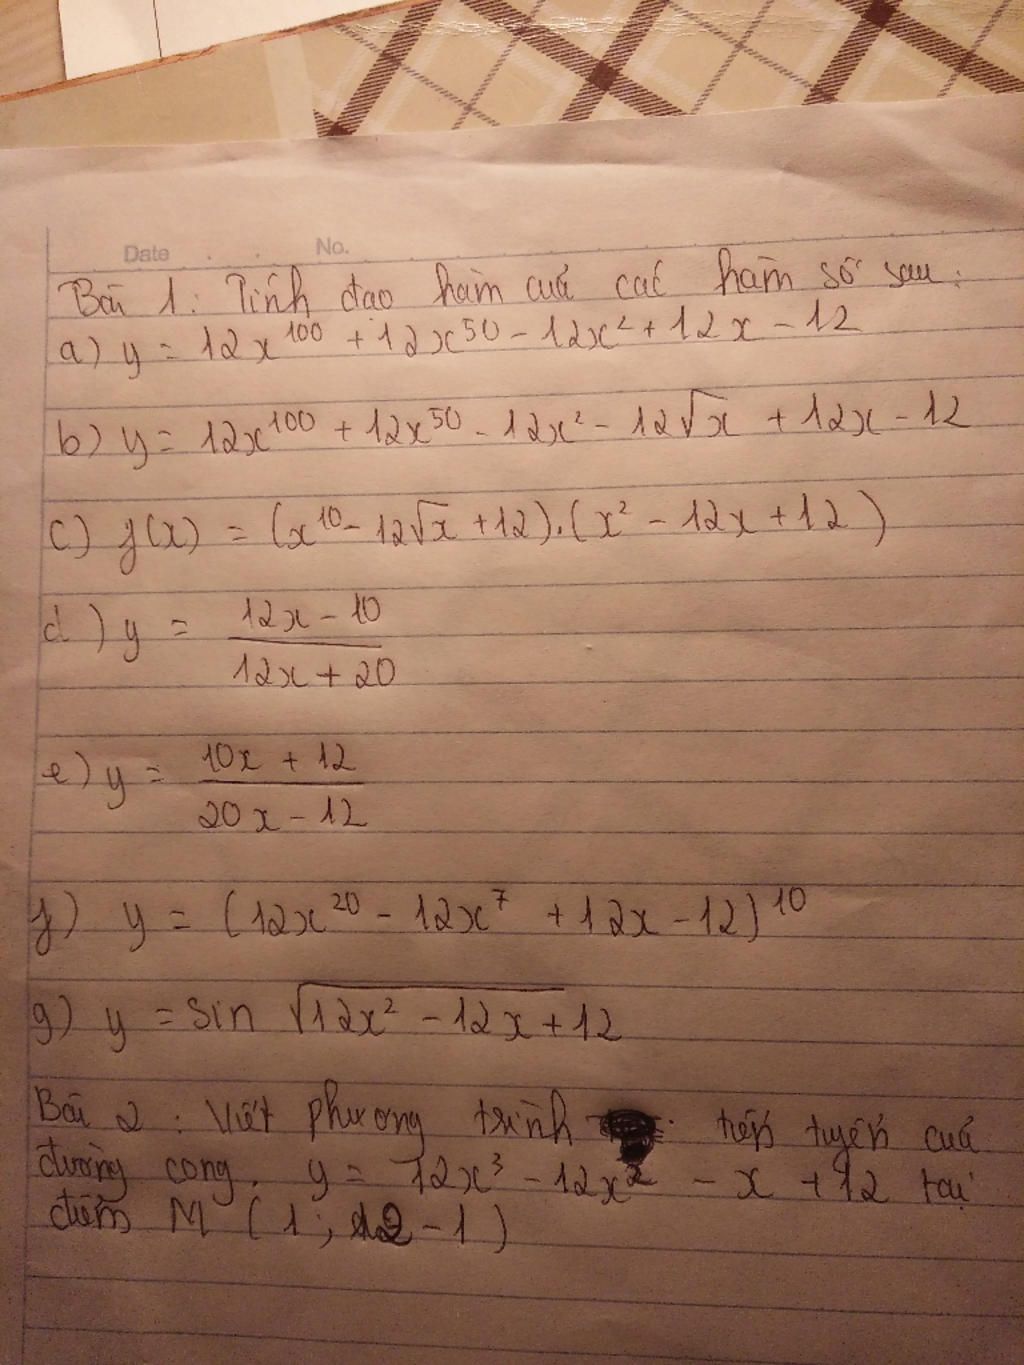 Date No.
Bài 1: Tính đạo hàm của các hàm số sau:
a) y = 12x^100 + 12x^50 - 12x² + 12x - 12
b) y = 12x^100 + 12x^50 - 12x² - 12√x + 12x - 12
c) f(x) = (x^10 - 12√x + 12).(x² - 12x + 12)
d) y = (12x - 10)/(12x + 20)
e) y = (10x + 12)/(20x - 12)
f) y = (12x^20 - 12x^7 + 12x - 12)^10
g) y = sin √(12x² - 12x + 12)
Bài 2: Viết phương trình tiếp tuyến của
đường cong. y = 12x³ - 12x² - x + 12 tại
điểm M (1; 12 - 1)